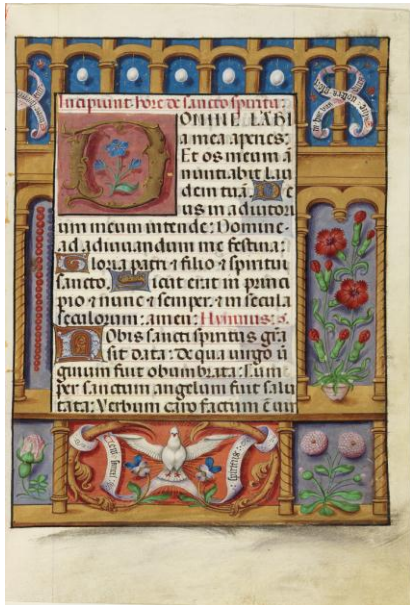 Incipiunt hore de sancto spiritu:
DOMINE LABI
a mea aperies:
Et os meum ā
nuntiabit lau
dem tuā. De
us in adiutori
um meum intende: Domine
ad adiuvandum me festina:
Gloria patri ⁊ filio ⁊ spiritui
sancto. Sicut erat in princi
pio ⁊ nunc ⁊ semper. ⁊ in secula
seculorum: amen: Hymnus:
Nobis sancti spiritus gr̄a
sit data: De qua virgo v̄
ginum fuit obumbrata: Cum
per sanctum angelum fuit salu
tata: Verbum caro factum ē